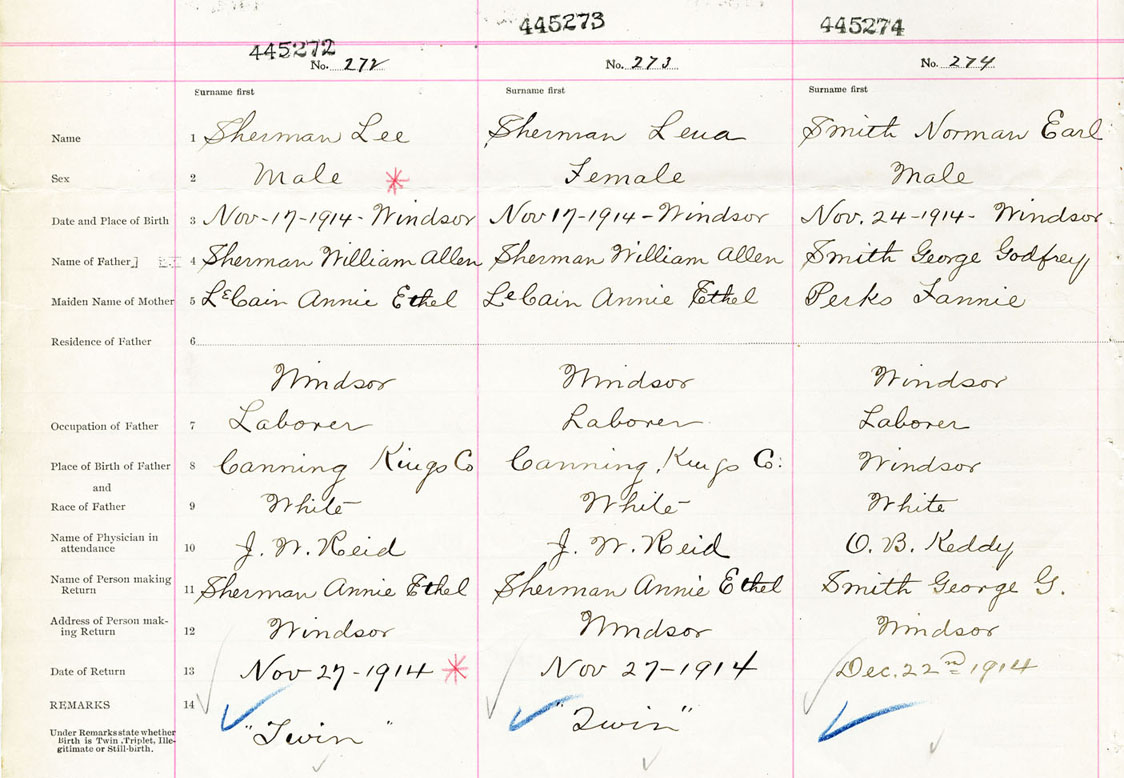 445272 445273 445274
No. 272 No. 273 No. 274
Surname first Surname first Surname first
Name 1 Sherman Lee Sherman Lena Smith Norman Earl
Sex 2 Male * Female Male
Date and Place of Birth 3 Nov-17-1914-Windsor Nov 17-1914-Windsor Nov. 24-1914- Windsor
Name of Father 4 Sherman William Allen Sherman William Allen Smith George Godfrey
Maiden Name of Mother 5 LeCain Annie Ethel LeCain Annie Ethel Perks Fannie
Residence of Father 6
Windsor Windsor Windsor
Occupation of Father 7 Laborer Laborer Laborer
Place of Birth of Father 8 Canning Kings Co Canning, Kings Co: Windsor
and
Race of Father 9 White White White
Name of Physician in
attendance 10 J. W. Reid J. W. Reid O. B. Keddy
Name of Person making
Return 11 Sherman Annie Ethel Sherman Annie Ethel Smith George G.
Address of Person mak-
ing Return 12 Windsor Windsor Windsor
Date of Return 13 Nov 27-1914 * Nov 27-1914 Dec. 22nd 1914
REMARKS 14
"Twin" "Twin"
Under Remarks state whether
Birth is Twin, Triplet, Ille-
gitimate or Still-birth.